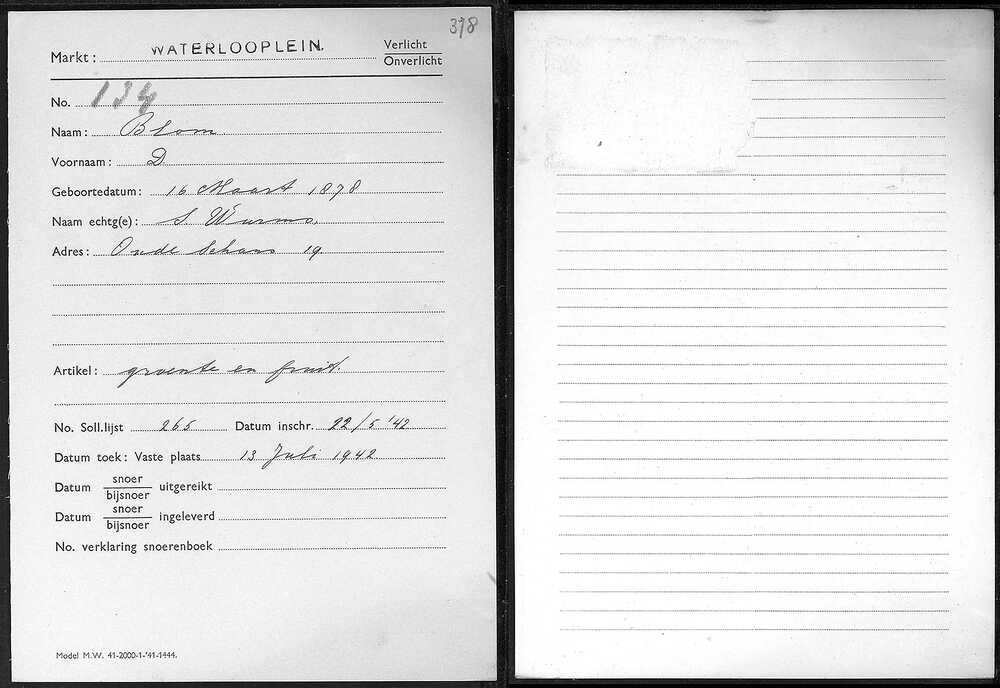 378
Markt: WATERLOOPLEIN. Verlicht
Onverlicht
No. 134
Naam: Blom
Voornaam: D
Geboortedatum: 16 Maart 1878
Naam echtg(e): S. Wurms.
Adres: Oude Schans 19.
Artikel: groente en fruit.
No. Soll.lijst 265 Datum inschr. 22/5 '42
Datum toek: Vaste plaats 13 Juli 1942
Datum snoer
bijsnoer uitgereikt
Datum snoer
bijsnoer ingeleverd
No. verklaring snoerenboek
Model M.W. 41-2000-1-'41-1444.